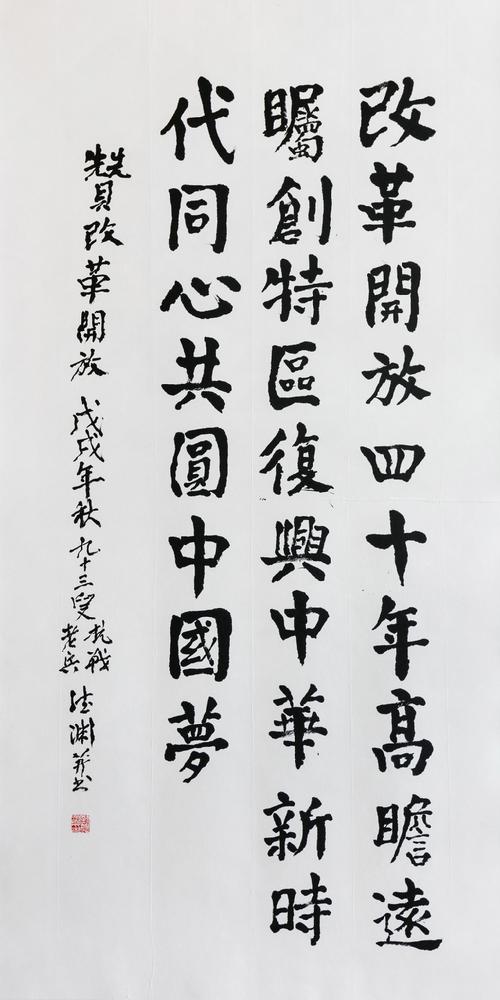 改革開放四十年高瞻遠
矚創特區復興中華新時
代同心共圓中國夢
改革開放 戊戌年秋 九十三叟 抗戰老兵